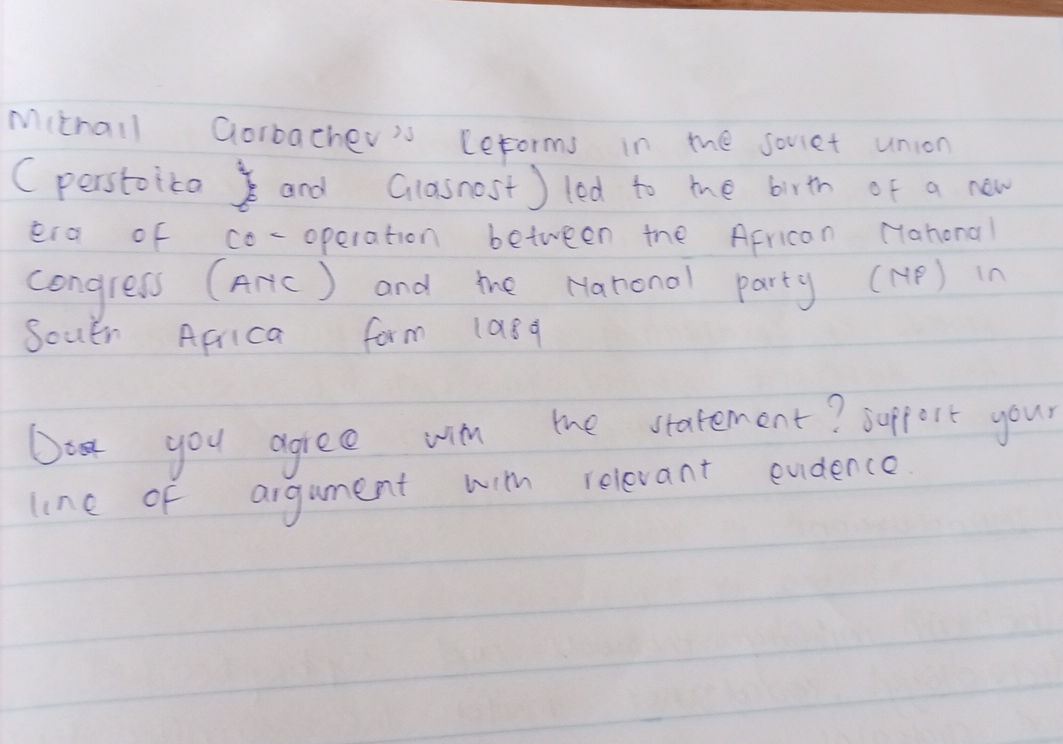 Mikhail Gorbachev's reforms in the soviet union
(perstoika and Glasnost) led to the birth of a new
era of co-operation between the African National
congress (ANC) and the National party (NP) in
South Africa form 1989
Do you agree with the statement? support your
line of argument with relevant evidence.